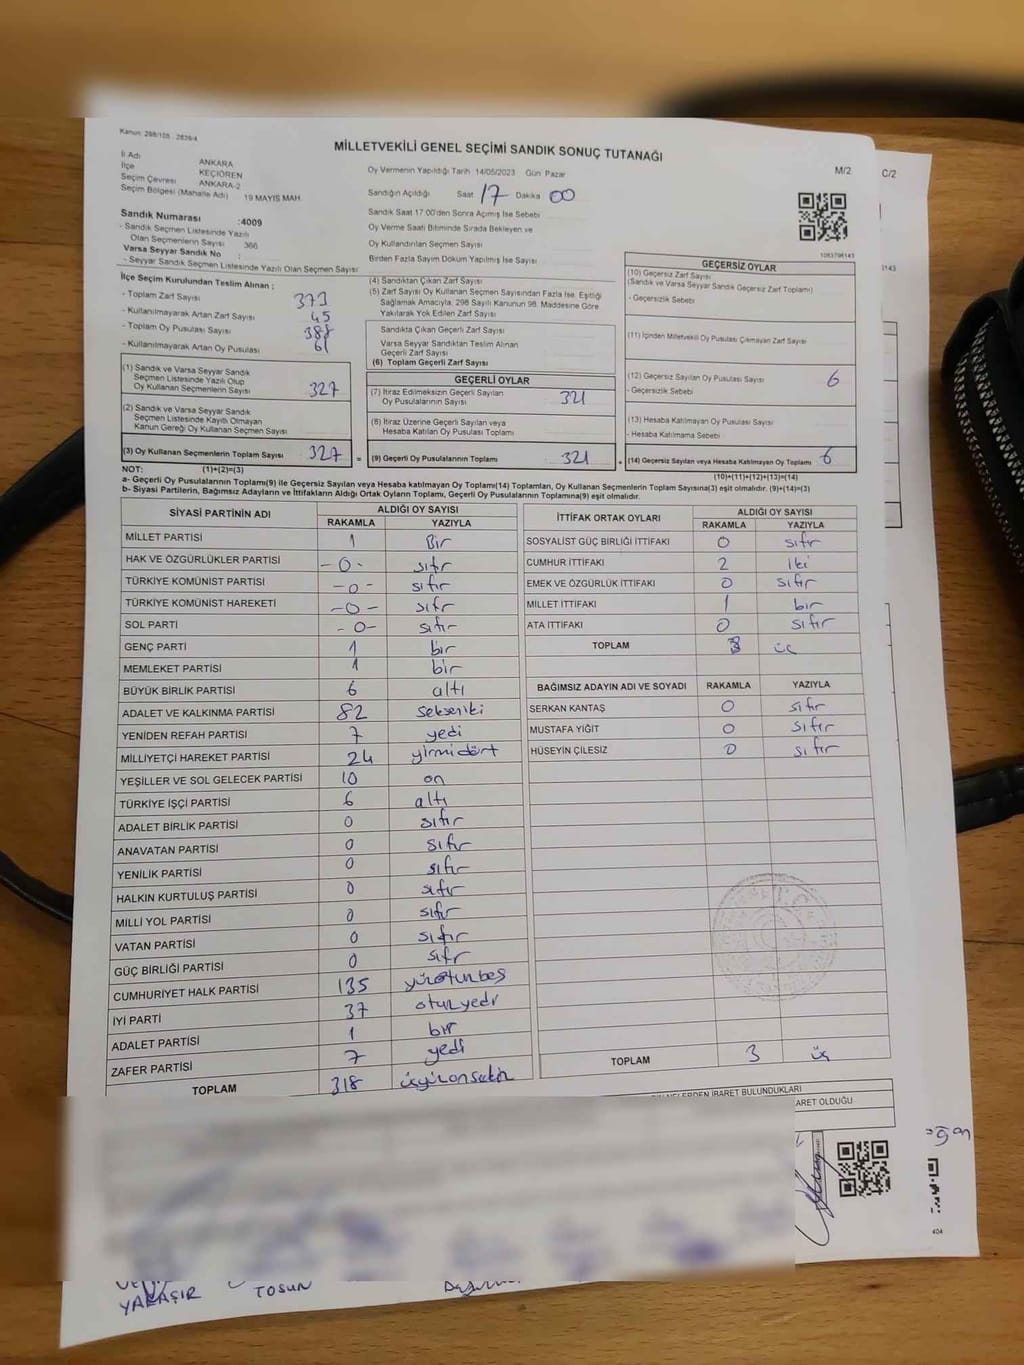 Kanun: 298/105 - 2839/4
MİLLETVEKİLİ GENEL SEÇİMİ SANDIK SONUÇ TUTANAĞI
M/2
C/2
İl Adı ANKARA
İlçe KEÇİÖREN
Seçim Çevresi ANKARA-2
Seçim Bölgesi (Mahalle Adı) 19 MAYIS MAH.
Sandık Numarası :4009
- Sandık Seçmen Listesinde Yazılı
Olan Seçmenlerin Sayısı 366
Varsa Seyyar Sandık No :
- Seyyar Sandık Seçmen Listesinde Yazılı Olan Seçmen Sayısı
Oy Vermenin Yapıldığı Tarih 14/05/2023 Gün Pazar
Sandığın Açıldığı Saat 17 Dakika 00
Sandık Saat 17:00'den Sonra Açmış İse Sebebi
Oy Verme Saati Bitiminde Sırada Bekleyen ve
Oy Kullandırılan Seçmen Sayısı
Birden Fazla Sayım Döküm Yapılmış İse Sayısı
1083798143
İlçe Seçim Kurulundan Teslim Alınan ;
- Toplam Zarf Sayısı 373
- Kullanılmayarak Artan Zarf Sayısı 45
- Toplam Oy Pusulası Sayısı 388
- Kullanılmayarak Artan Oy Pusulası 61
(1) Sandık ve Varsa Seyyar Sandık
Seçmen Listesinde Yazılı Olup
Oy Kullanan Seçmenlerin Sayısı 327
(2) Sandık ve Varsa Seyyar Sandık
Seçmen Listesinde Kayıtlı Olmayan
Kanun Gereği Oy Kullanan Seçmen Sayısı
(3) Oy Kullanan Seçmenlerin Toplam Sayısı 327 =
(4) Sandıktan Çıkan Zarf Sayısı
(5) Zarf Sayısı Oy Kullanan Seçmen Sayısından Fazla İse, Eşitliği
Sağlamak Amacıyla, 298 Sayılı Kanunun 98. Maddesine Göre
Yakılarak Yok Edilen Zarf Sayısı
Sandıkta Çıkan Geçerli Zarf Sayısı
Varsa Seyyar Sandıktan Teslim Alınan
Geçerli Zarf Sayısı
(6) Toplam Geçerli Zarf Sayısı
GEÇERLİ OYLAR
(7) İtiraz Edilmeksizin Geçerli Sayılan
Oy Pusulalarının Sayısı 321
(8) İtiraz Üzerine Geçerli Sayılan veya
Hesaba Katılan Oy Pusulası Toplamı
(9) Geçerli Oy Pusulalarının Toplamı 321 +
GEÇERSİZ OYLAR
(10) Geçersiz Zarf Sayısı
(Sandık ve Varsa Seyyar Sandık Geçersiz Zarf Toplamı)
- Geçersizlik Sebebi
(11) İçinden Milletvekili Oy Pusulası Çıkmayan Zarf Sayısı
(12) Geçersiz Sayılan Oy Pusulası Sayısı 6
- Geçersizlik Sebebi
(13) Hesaba Katılmayan Oy Pusulası Sayısı
- Hesaba Katılmama Sebebi
(14) Geçersiz Sayılan veya Hesaba Katılmayan Oy Toplamı 6
NOT: (1)+(2)=(3) (10)+(11)+(12)+(13)=(14)
a- Geçerli Oy Pusulalarının Toplamı(9) ile Geçersiz Sayılan veya Hesaba katılmayan Oy Toplamı(14) Toplamları, Oy Kullanan Seçmenlerin Toplam Sayısına(3) eşit olmalıdır. (9)+(14)=(3)
b- Siyasi Partilerin, Bağımsız Adayların ve İttifakların Aldığı Ortak Oyların Toplamı, Geçerli Oy Pusulalarının Toplamına(9) eşit olmalıdır.
SİYASİ PARTİNİN ADI ALDIĞI OY SAYISI
RAKAMLA YAZIYLA
MİLLET PARTİSİ 1 Bir
HAK VE ÖZGÜRLÜKLER PARTİSİ -0- sıfır
TÜRKİYE KOMÜNİST PARTİSİ -0- sıfır
TÜRKİYE KOMÜNİST HAREKETİ -0- sıfır
SOL PARTİ -0- sıfır
GENÇ PARTİ 1 bir
MEMLEKET PARTİSİ 1 bir
BÜYÜK BİRLİK PARTİSİ 6 altı
ADALET VE KALKINMA PARTİSİ 82 sekseniki
YENİDEN REFAH PARTİSİ 7 yedi
MİLLİYETÇİ HAREKET PARTİSİ 24 yirmidört
YEŞİLLER VE SOL GELECEK PARTİSİ 10 on
TÜRKİYE İŞÇİ PARTİSİ 6 altı
ADALET BİRLİK PARTİSİ 0 sıfır
ANAVATAN PARTİSİ 0 sıfır
YENİLİK PARTİSİ 0 sıfır
HALKIN KURTULUŞ PARTİSİ 0 sıfır
MİLLİ YOL PARTİSİ 0 sıfır
VATAN PARTİSİ 0 sıfır
GÜÇ BİRLİĞİ PARTİSİ 0 sıfır
CUMHURİYET HALK PARTİSİ 135 yüzotuzbeş
İYİ PARTİ 37 otuzyedi
ADALET PARTİSİ 1 bir
ZAFER PARTİSİ 7 yedi
TOPLAM 318 üçyüzonsekiz
İTTİFAK ORTAK OYLARI ALDIĞI OY SAYISI
RAKAMLA YAZIYLA
SOSYALİST GÜÇ BİRLİĞİ İTTİFAKI 0 sıfır
CUMHUR İTTİFAKI 2 iki
EMEK VE ÖZGÜRLÜK İTTİFAKI 0 sıfır
MİLLET İTTİFAKI 1 bir
ATA İTTİFAKI 0 sıfır
TOPLAM 3 üç
BAĞIMSIZ ADAYIN ADI VE SOYADI RAKAMLA YAZIYLA
SERKAN KANTAŞ 0 sıfır
MUSTAFA YİĞİT 0 sıfır
HÜSEYİN ÇİLESİZ 0 sıfır
TOPLAM 3 üç
NELERDEN İBARET BULUNDUKLARI
ARET OLDUĞU
404
YARAŞIR
TOSUN